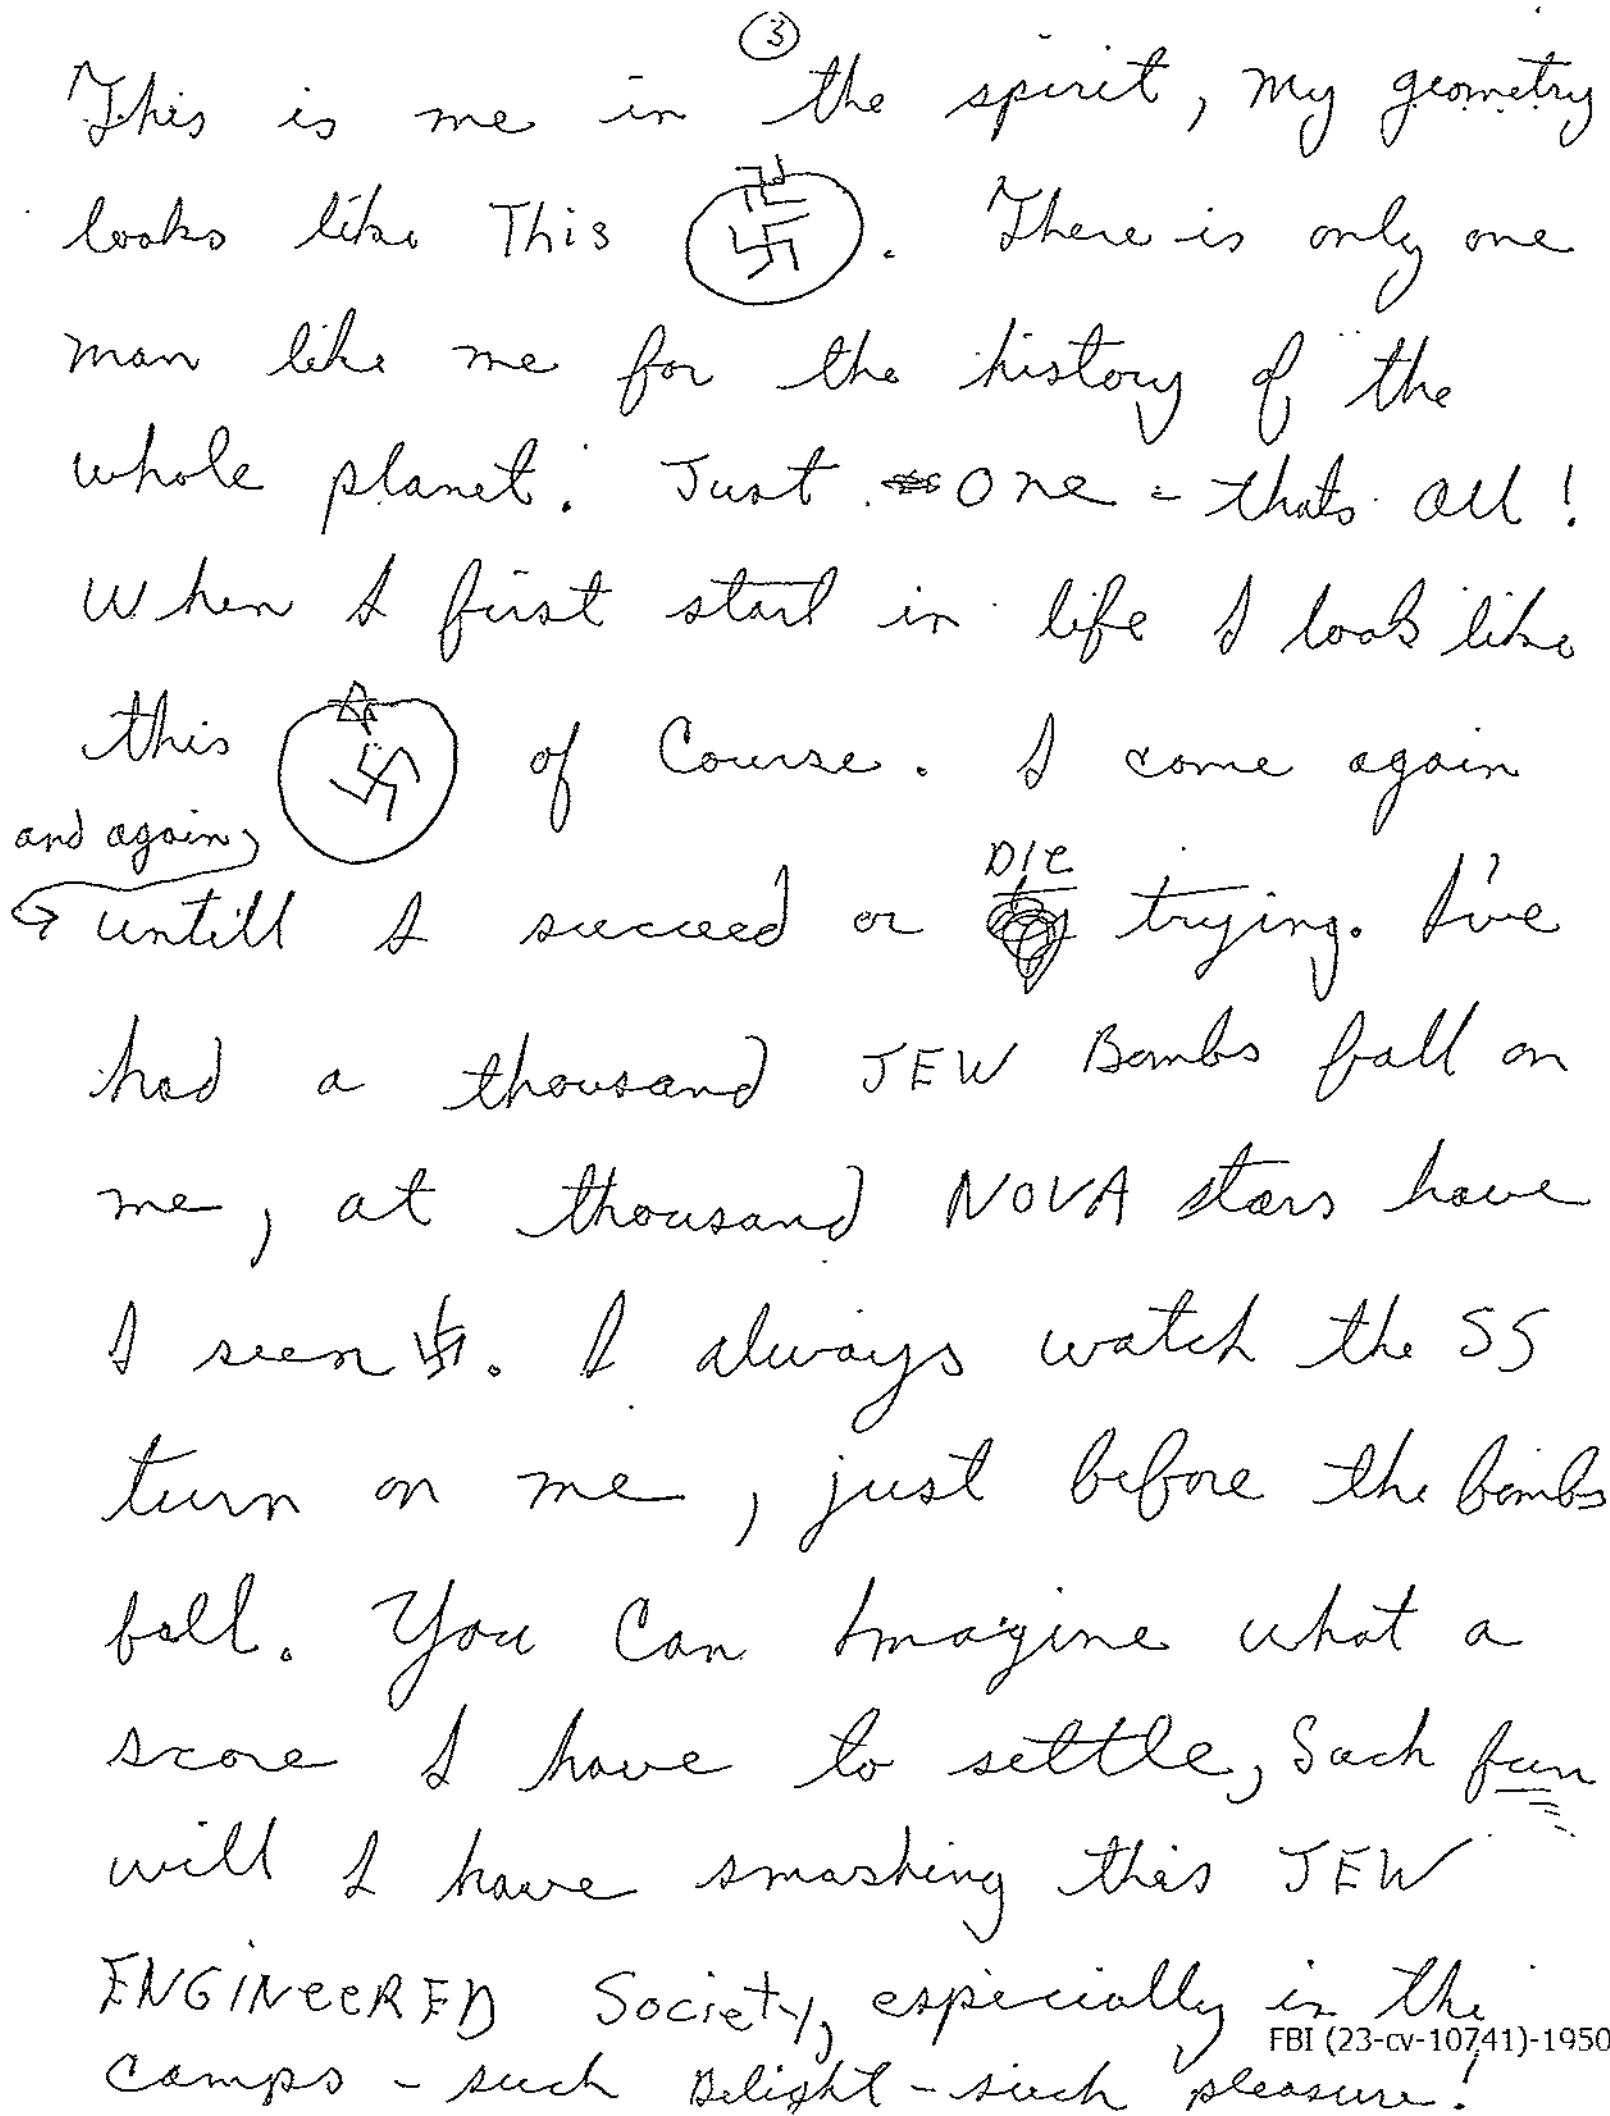 3
This is me in the spirit, my geometry
looks like This . There is only one
man like me for the history of the
whole planet. Just One - thats All!
When I first start in life I look like
this of Course. I come again
and again,
DIE
untill I succeed or trying. I've
had a thousand JEW Bombs fall on
me, at thousand NOVA stars have
I seen . I always watch the SS
turn on me, just before the bombs
fall. You Can Imagine what a
score I have to settle, Such fun
will I have smashing this JEW
ENGINeeRED Society, especially in the
FBI (23-cv-10741)-1950
Camps - such Delight - such pleasure!